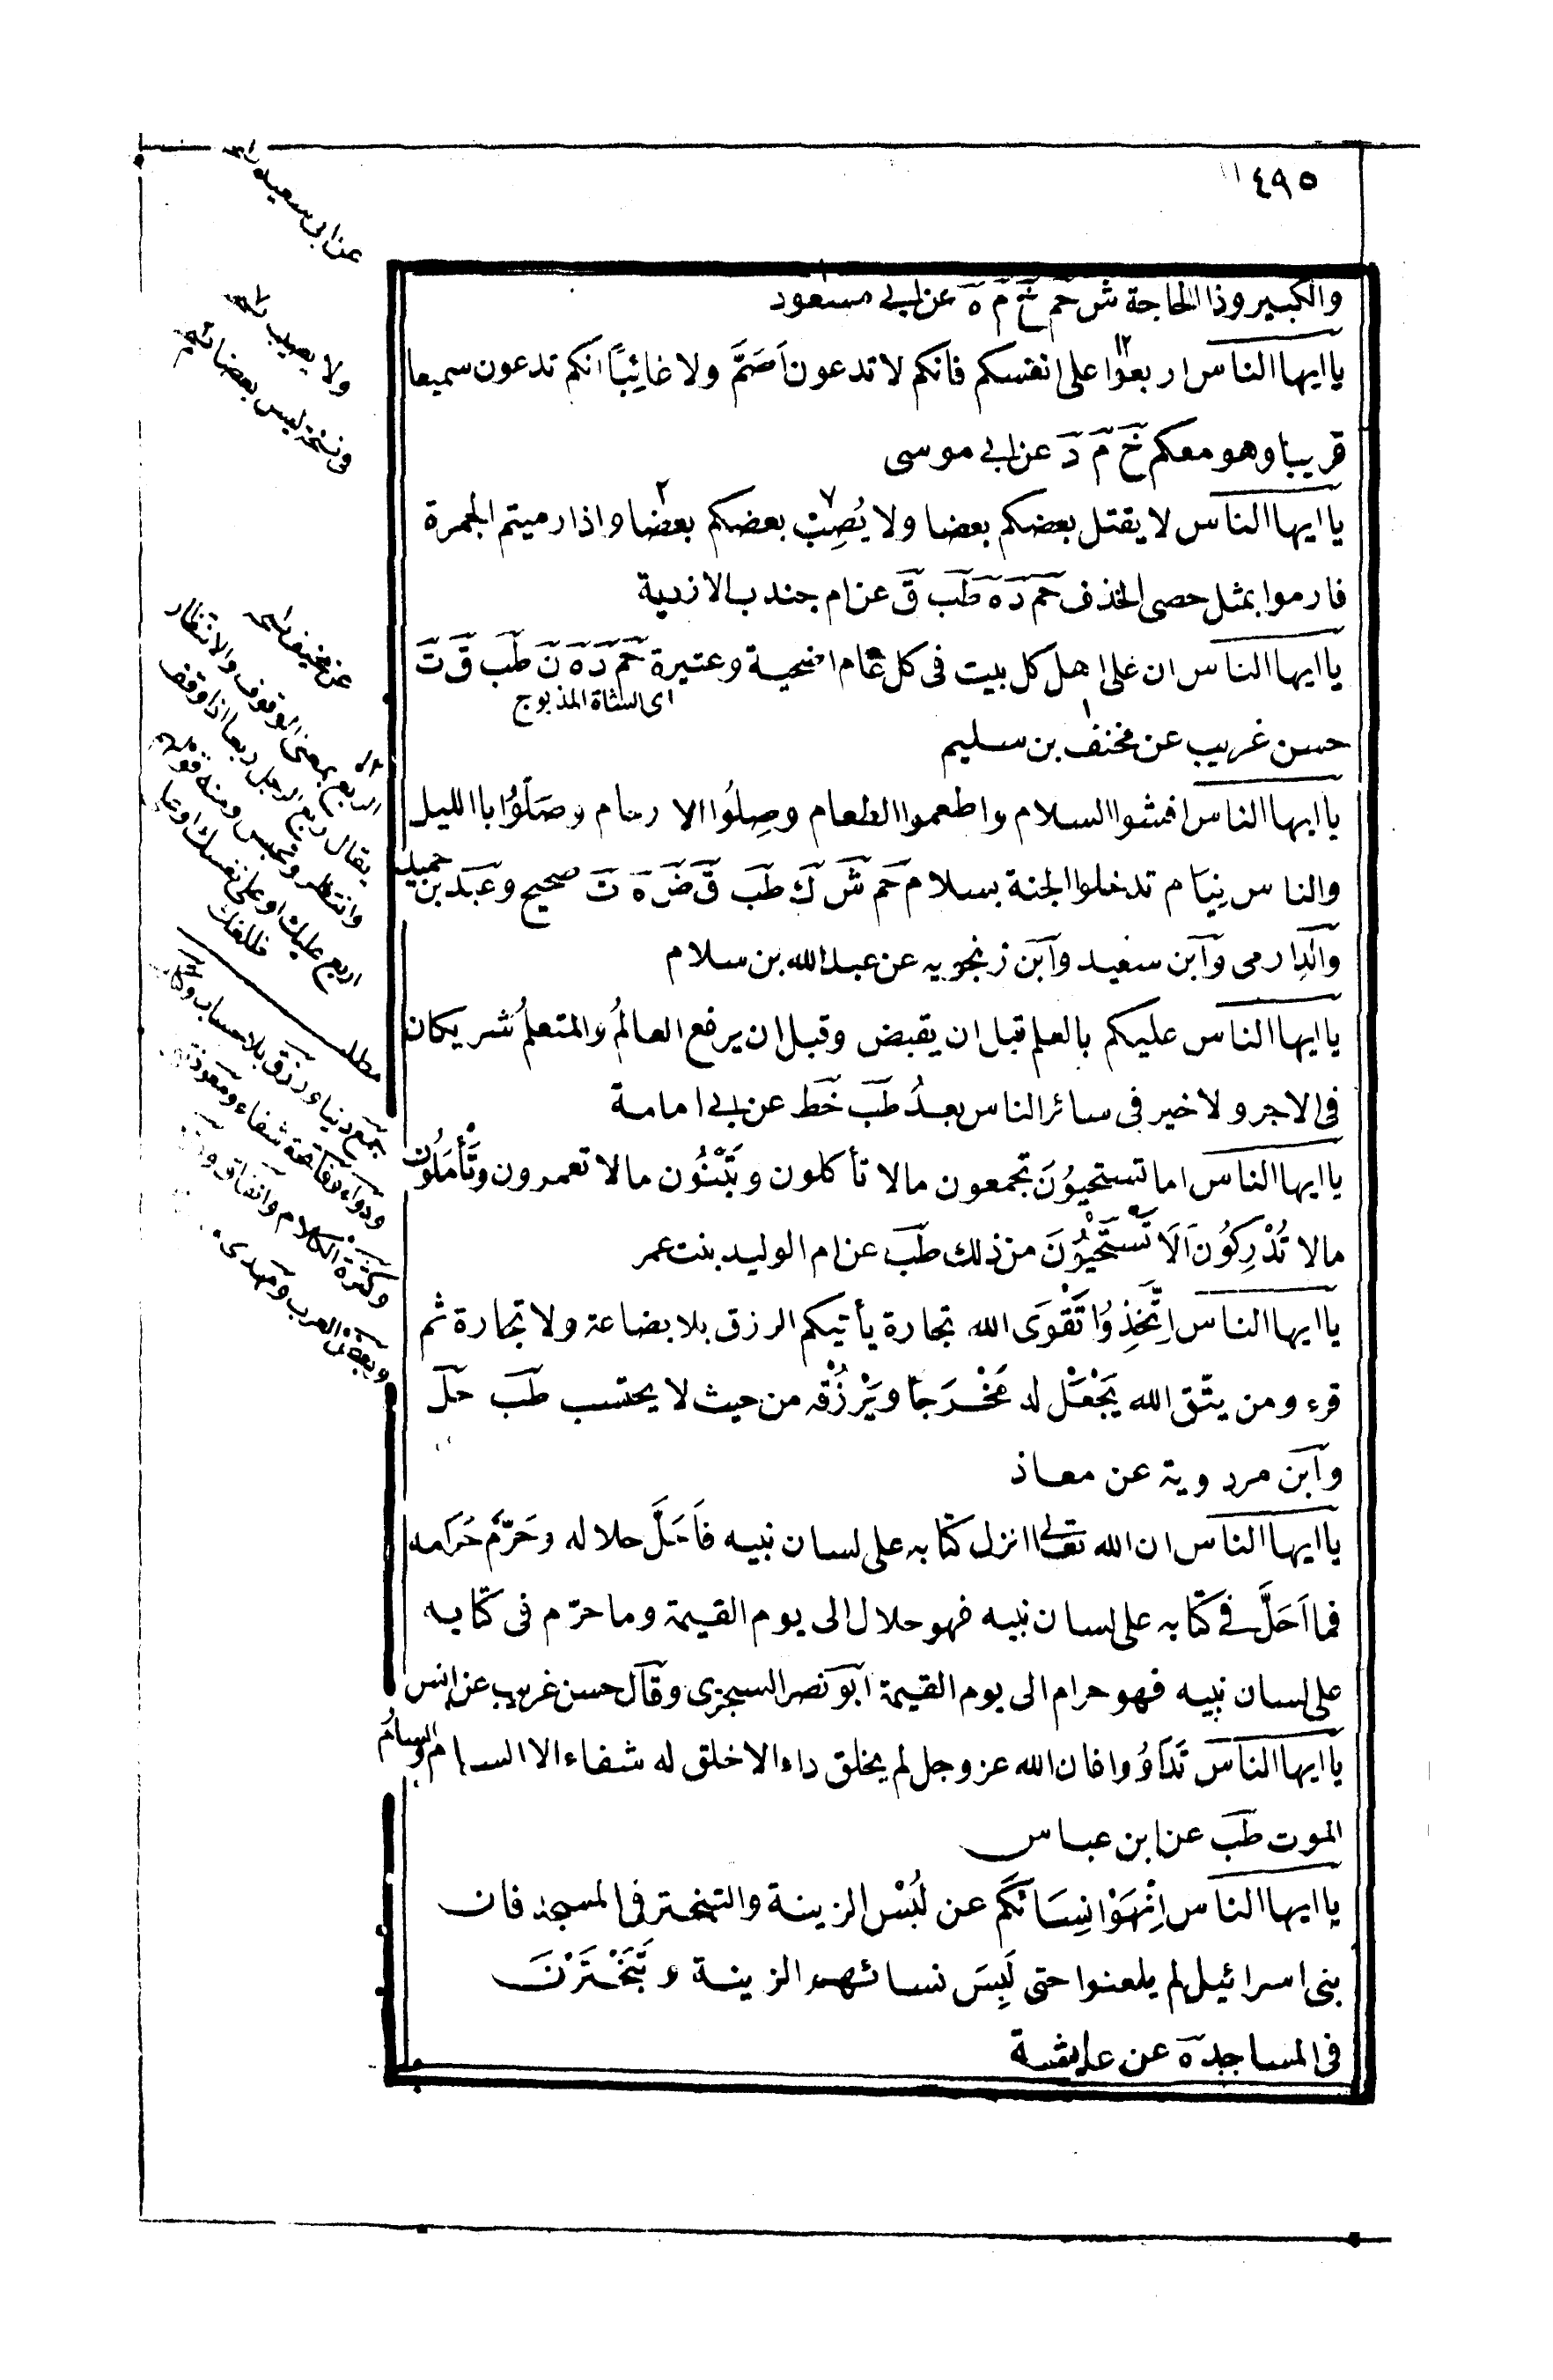 ٤٩٥
والكبير وذا الحاجة ش حم خ م ه عن ابى مسعود
يا ايها الناس اربعوا على انفسكم فانكم لا تدعون اَصَمَّ ولا غائِبًا انكم تدعون سميعا
قريبا وهو معكم خ م د عن ابى موسى
يا ايها الناس لا يقتل بعضكم بعضا ولا يُصِبْ بعضكم بعضا واذا رميتم الجمرة
فارموا بمثل حصى الخذف حم د ه طب ق عن ام جندب الازدية
يا ايها الناس ان على اهل كل بيت فى كل عام اضحية وعتيرة حم د ه ن طب ق ت
اى الشاة المذبوح
حسن غريب عن مخنف بن سليم
يا ايها الناس افشوا السلام واطعموا الطعام وصِلُوا الارحام وصَلُّوا باالليل
والناس نِيَام تدخلوا الجنة بسلام حم ش ك طب ق ض ه ت صحيح وعبد بن حميد
والدارمى وابن سعيد وابن زنجويه عن عبد الله بن سلام
يا ايها الناس عليكم بالعلم قبل ان يقبض وقبل ان يرفع العالمُ والمتعلمُ شريكان
فى الاجر ولا خير فى سائر الناس بعدُ طب خط عن ابى امامة
يا ايها الناس اما تستحيُوْنَ تجمعون مالا تأكلون وتَبْنُون مالا تعمرون وتَأْمَلُون
مالا تُدْرِكُونَ اَلَا تَسْتَحْيُوْنَ من ذلك طب عن ام الوليد بنت عمر
يا ايها الناس اِتَّخِذُوا تَقْوَى الله تجارة يأتيكم الرزق بلا بضاعة ولا تجارة ثم
قرء ومن يتّق الله يَجْعَلْ له مَخْرَجاً ويَرْزُقْه من حيث لا يحتسب طب حل
وابن مردوية عن معاذ
يا ايها الناس ان الله تعالى انزل كتابه على لسان نبيه فاَحَلَّ حلاله وحَرَّمَ حَرَامه
فما اَحَلَّ فى كتابه على لسان نبيه فهو حلال الى يوم القيمة وما حرّم فى كتابه
على لسان نبيه فهو حرام الى يوم القيمة ابو نصر السجزى وقال حسن غريب عن انس
يا ايها الناس تَدَاوُوا فان الله عز وجل لم يخلق داء الا خلق له شفاء الا السام والسامُ
الموت طب عن ابن عباس
يا ايها الناس اِنْهَوْا نِسَائكُم عن لُبْس الزينة والتبختر فى المسجد فان
بنى اسرائيل لم يلعنوا حتى لَبِسَ نسائهم الزينة وتَبَخْتَرْنَ
فى المساجد ه عن عايشة
عن ابى سعيد
ولا يصيب
وفى نسخة ليس بعضا
عن مخنف
الربع بمعنى الوقوف والانتظار
يقال ربع الرجل ربعا اذا وقف
وانتظر وتحبس ومنه قولهم
اربع عليك او على نفسك او على
ظلعك
مطلب
جمع دنيا ورزق بلا حساب
ودواء وفاتحة شفاء ومعوذتين
وكثرة الكلام وانفاق
وبعض العرب ومهدى